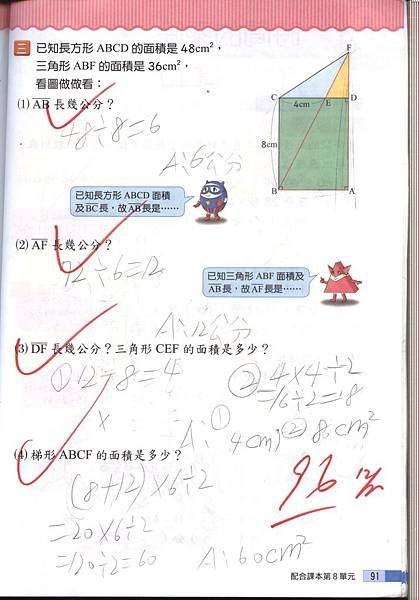 三 已知長方形 ABCD 的面積是 48cm²，
三角形 ABF 的面積是 36cm²，
看圖做做看：
F
C
4cm
E
D
8cm
B
A
(1) AB 長幾公分？
48÷8=6
A：6公分
已知長方形 ABCD 面積
及BC長，故AB長是……
(2) AF 長幾公分？
72÷6=12
已知三角形 ABF 面積及
AB長，故AF長是……
A：12公分
(3) DF 長幾公分？三角形 CEF 的面積是多少？
①12-8=4
②4×4÷2
=16÷2=18
A：①4cm ②8cm²
(4) 梯形 ABCF 的面積是多少？
(8+12)×6÷2
=20×6÷2
=120÷2=60
A：60cm²
96
配合課本第8單元
91